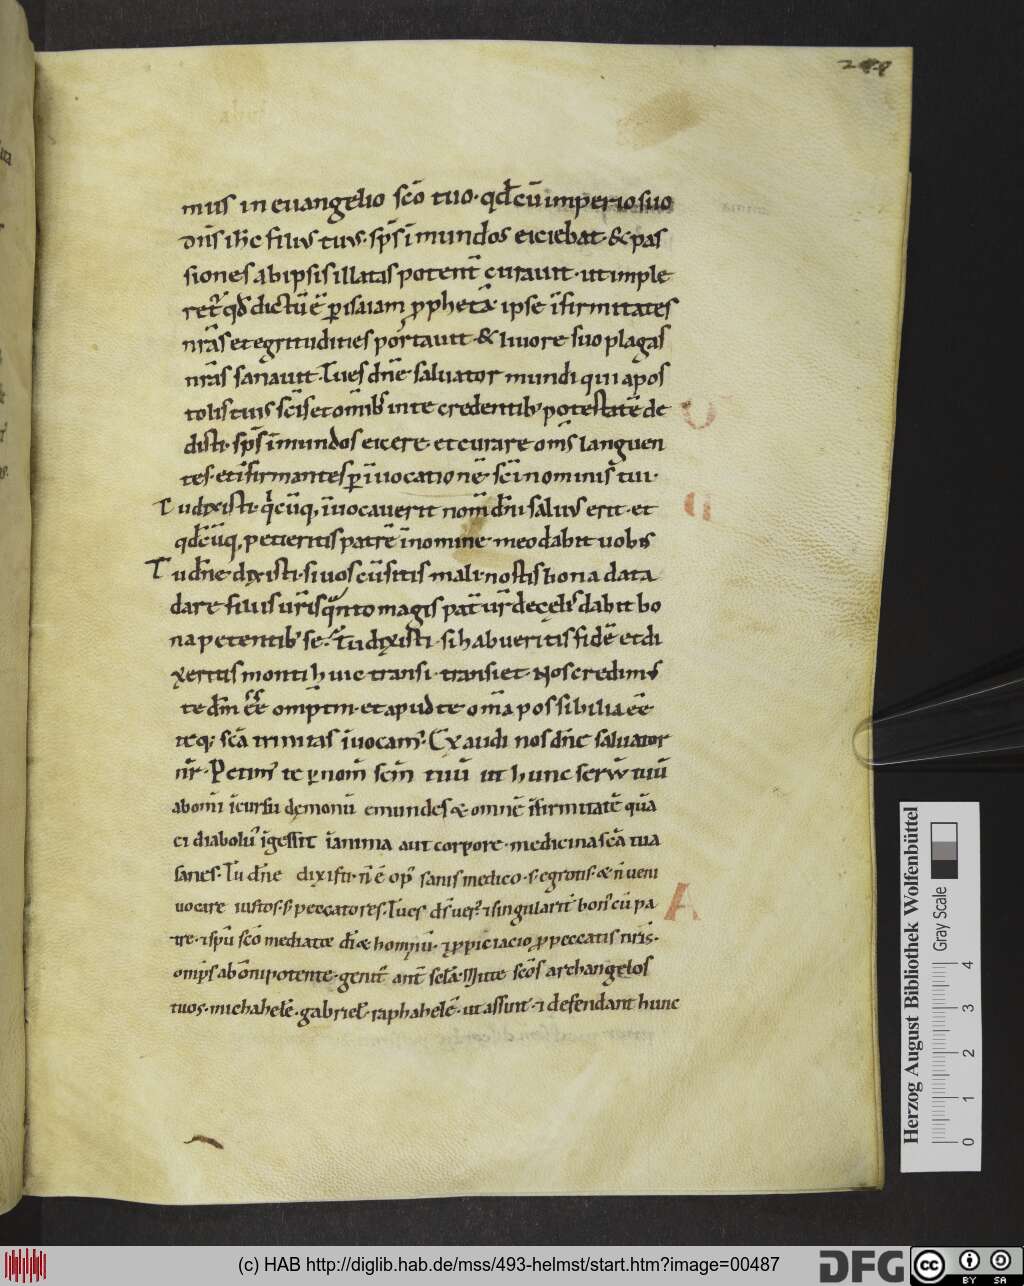 mus in euangelio scō tuo· qđ cū imperio suo
dn̄s ih̄c filius tuus· sp̄s īmundos eiciebat· & pas
siones ab ipsis illatas potent̄ curauit· ut imple
ret̄ qđ dictū ē p isaiam pphetā· ipse īfirmitates
nr̄as et egritudines portauit· & liuore suo plagas
nr̄as sanauit· Tu es dn̄e saluator mundi qui apos
tolis tuis scīs et omīb; in te credentib; potestatē de
disti· sp̄s īmundos eicere· et curare om̄s languen
tes· et īfirmantes p īuocationē· scī nominis tui·
Tu dixisti· qcūq, īuocauerit nom̄ dn̄i saluus erit· et
qđcūq, petieritis patrē ī nomine meo dabit uobis
Tu dn̄e dixisti· si uos cū sitis mali· nostis bona data
dare filiis ur̄is qnto magis pat̄ ur̄ de cęlis dabit bo
na petentib; se· Tu dixisti· si habueritis fidē et di
xeritis monti huic transi· transiet· Nos credim;
te dm̄ ēē omp̄tm· et apud te om̄a possibilia ēē
teq; scā trinitas īuocam;· Exaudi nos dn̄e saluator
nr̄· Petim; te p nom̄ scm̄ tuū ut hunc seruū tuū
ab omī īcursu dęmonū emundes & omnē īfirmitatē quā
ei diabolus īgessit ī anima aut corpore· medicina scā tua
sanes· Tu dn̄e dixisti· n̄ ē op; sanis medico· s; egrotis· & n̄ ueni
uocare iustos· s; peccatores· Tu es ds̄ uer; singularit̄ bon; cū pa
tre· spū scō mediator dī & hominū· ppiciacio p peccatis nr̄is·
omps ab omīpotente· genit; ant̄ scla· Mitte scōs archangelos
tuos· michahelē· gabrielē· raphahelē· ut assint· defendant hunc
Herzog August Bibliothek Wolfenbüttel
Gray Scale
0 1 2 3 4
(c) HAB http://diglib.hab.de/mss/493-helmst/start.htm?image=00487
DFG
cc BY SA